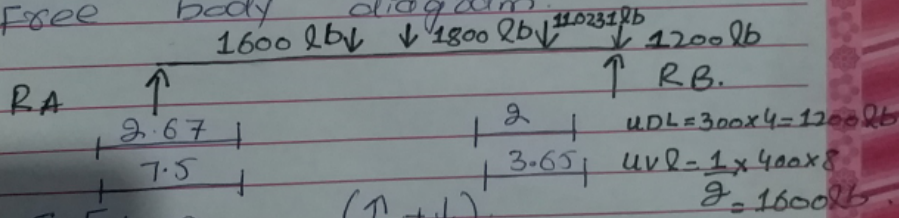 Free body diagram.
1600 lb↓ ↓ 1800 lb↓ 11023lb ↓ 1200lb
RA ↑ ↑ RB.
2.67 2 UDL=300x4=1200lb
7.5 3.65 uvl=1/2 x 400x8
=1600lb.
(↑ + ↓)